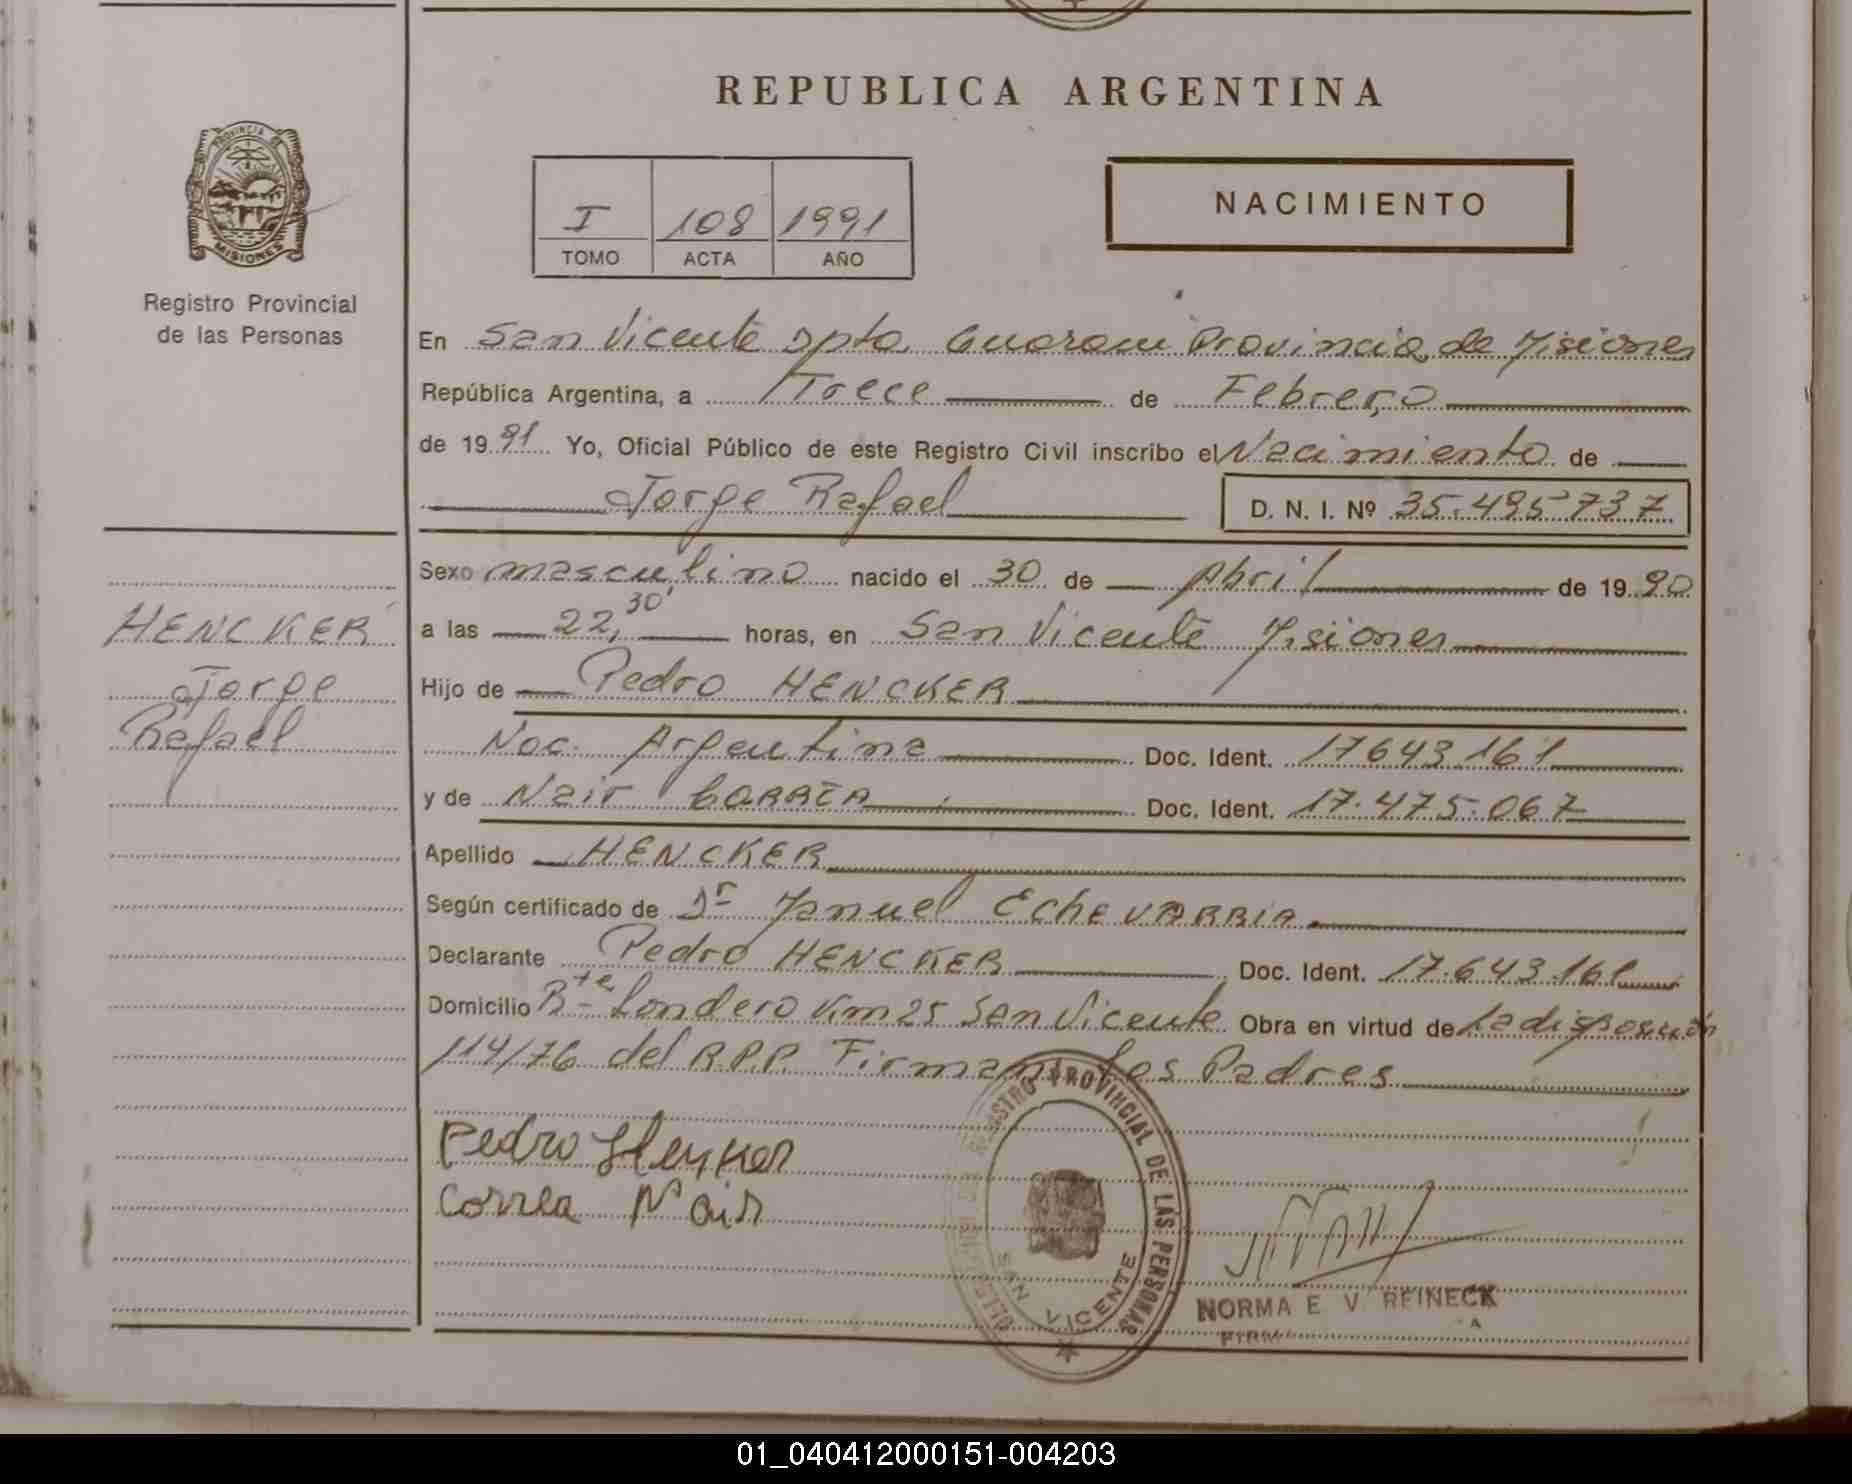 REPUBLICA ARGENTINA
PROVINCIA DE
MISIONES
Registro Provincial
de las Personas
I 108 1991
TOMO ACTA AÑO
NACIMIENTO
En San Vicente Dpto. Guarani Provincia de Misiones
República Argentina, a Trece de Febrero
de 19 91 Yo, Oficial Público de este Registro Civil inscribo el Nacimiento de
Jorge Rafael D. N. I. Nº 35.495737
HENCKER
Jorge
Rafael
Sexo masculino nacido el 30 de Abril de 19 90
a las 22,30' horas, en San Vicente Misiones
Hijo de Pedro HENCKER
Nac. Argentina Doc. Ident. 17643.161
y de Nair CORREA Doc. Ident. 17.475.067
Apellido HENCKER
Según certificado de Dr Manuel EcheVARRIA
Declarante Pedro HENCKER Doc. Ident. 17.643.161
Domicilio Londero Km 25 San Vicente Obra en virtud de La disposición
114/76 del R.P.P. Firman los Padres
Pedro
Correa Nair
REGISTRO PROVINCIAL DE LAS PERSONAS
SAN VICENTE
NORMA E V REINECK
01_040412000151-004203